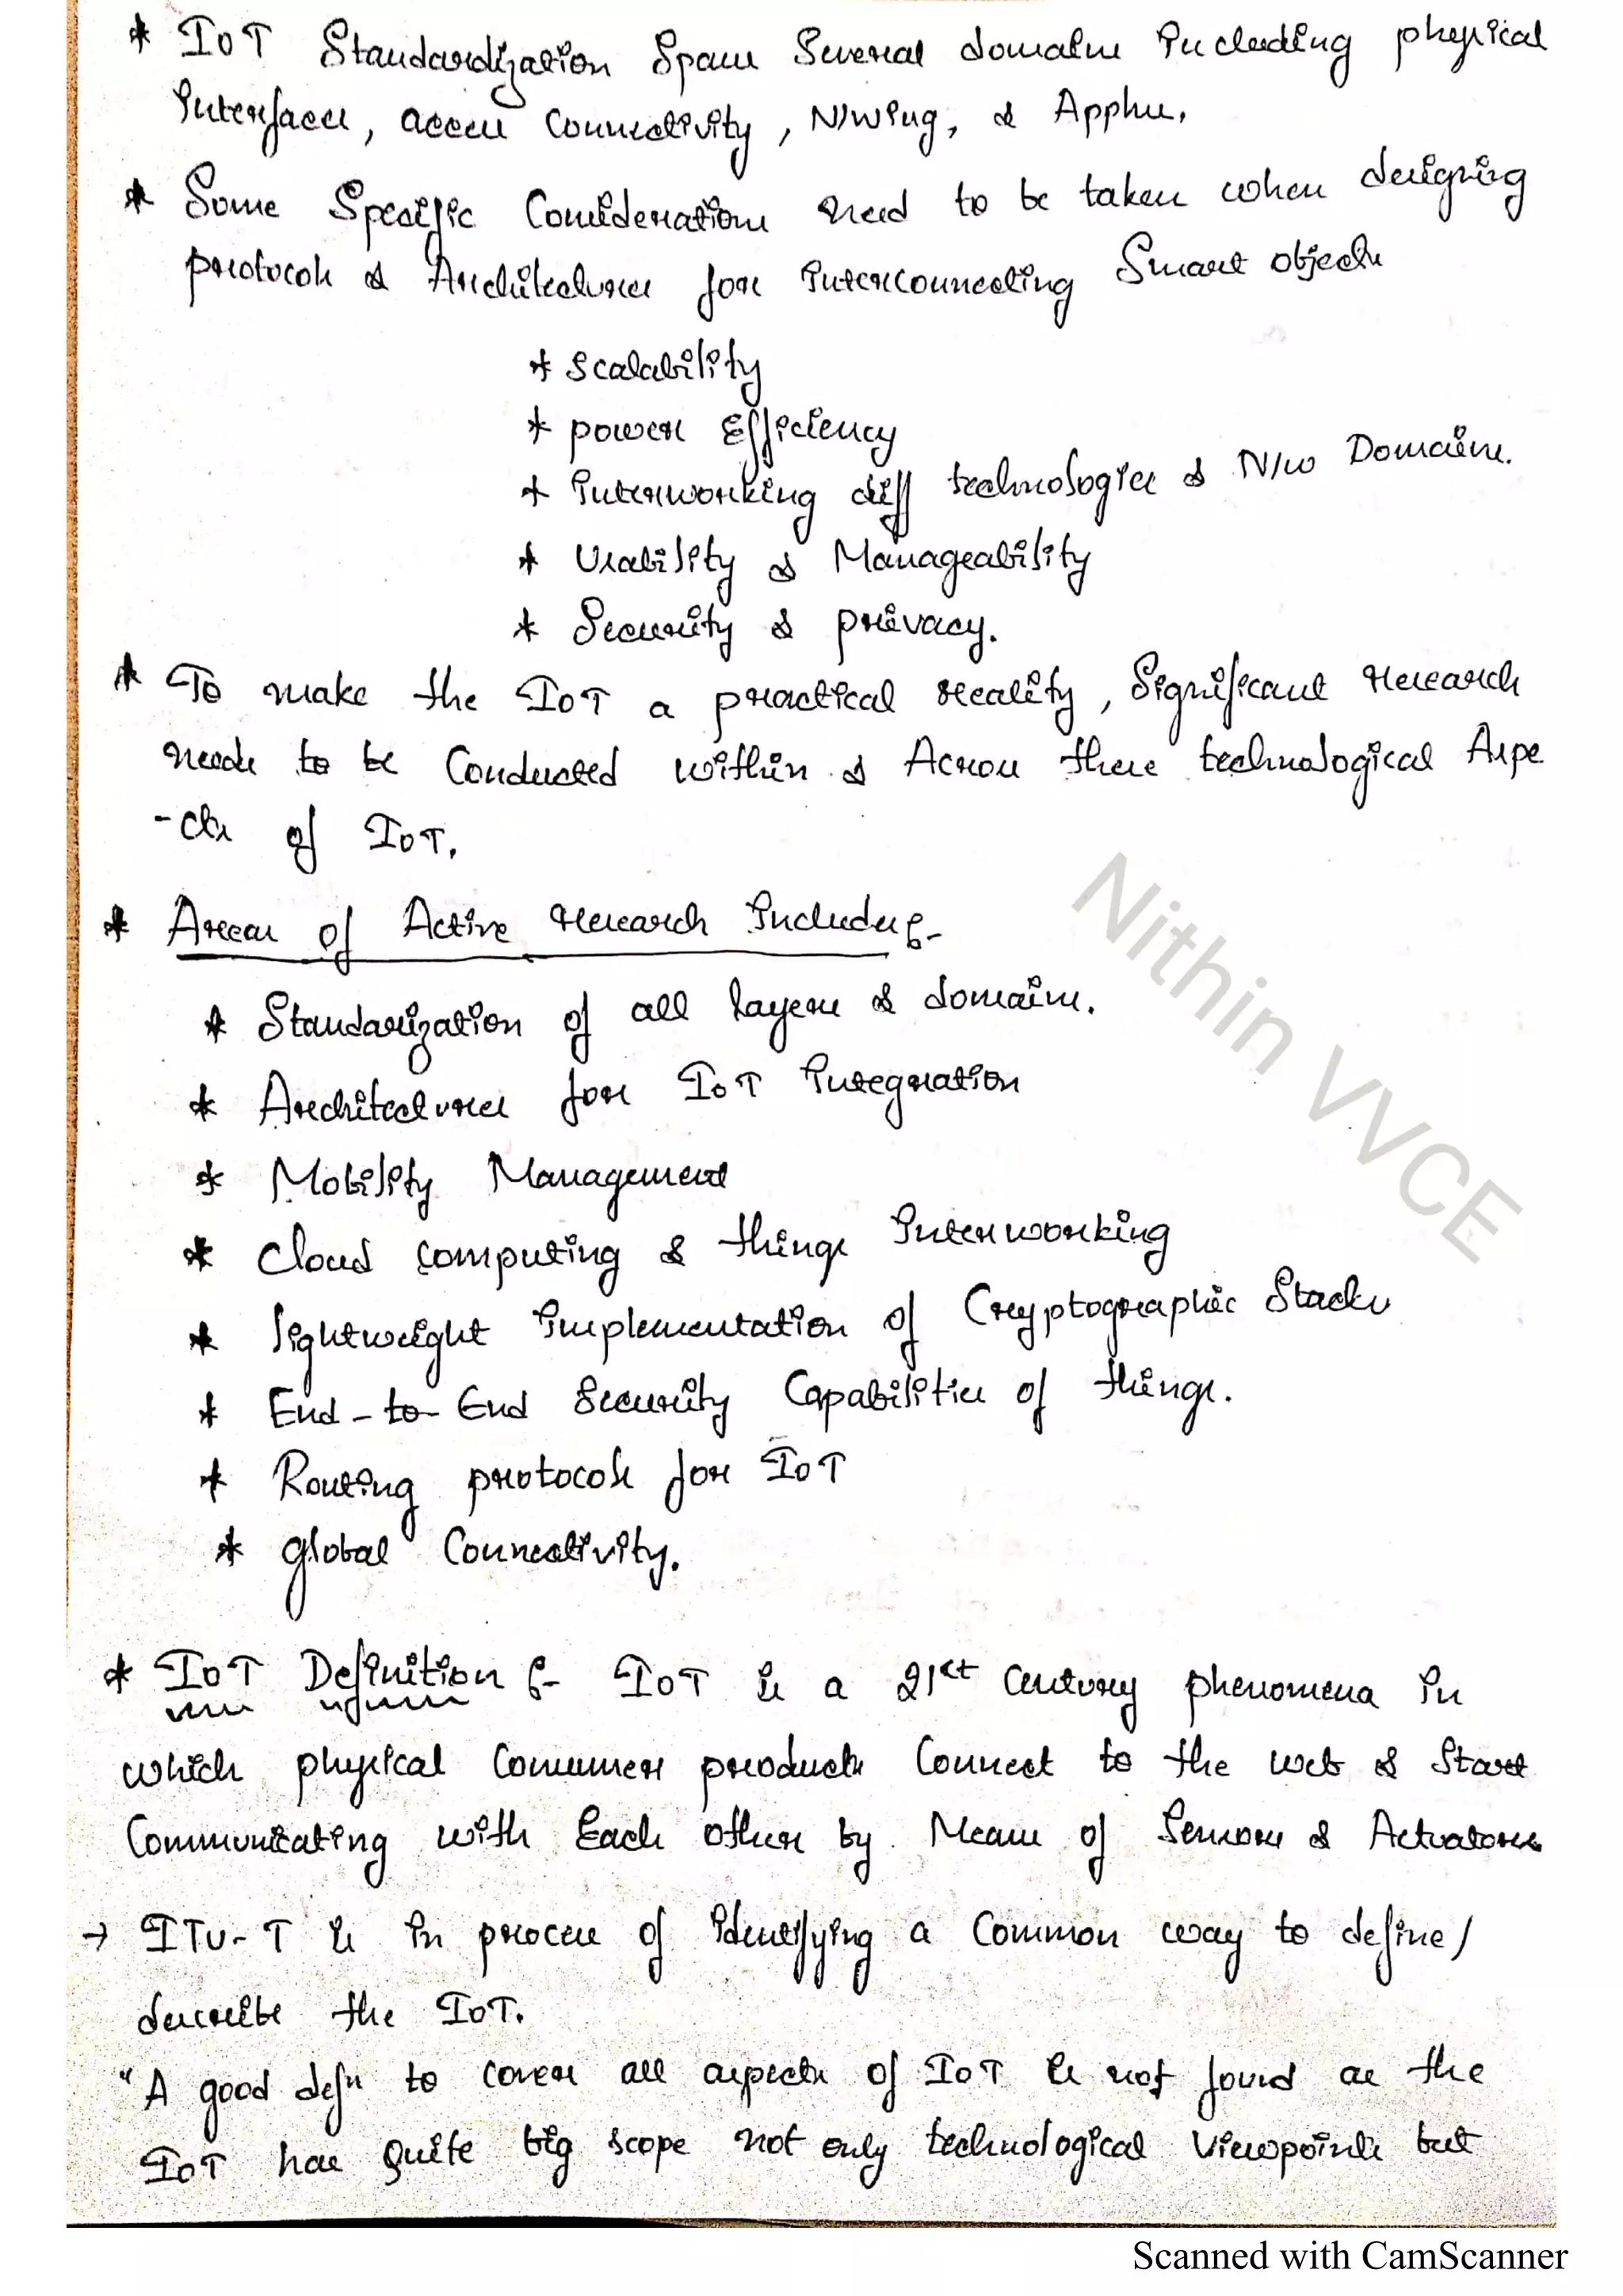 * IoT Standardization Spans Several domains including physical
interfaces, access connectivity, N/Wing, & Applns.
* Some Specific Considerations need to be taken when designing
protocols & Architectures for interconnecting Smart objects
* Scalability
* power Efficiency
* interworking diff technologies & N/w Domains.
* Usability & Manageability
* Security & privacy.
* To make the IoT a practical reality, Significant research
needs to be Conducted within & Across these technological Aspe
-cts of IoT.
* Areas of Active research includes:-
* Standarization of all layers & domains.
* Architectures for IoT integration
* Mobility Management
* Cloud computing & things interworking
* lightweight implementation of Cryptographic Stacks
* End-to-End Security Capabilities of things.
* Routing protocols for IoT
* global Connectivity.
* IoT Definition :- IoT is a 21st Century phenomena in
which physical Consumer products Connect to the web & Start
Communicating with Each other by Means of Sensors & Actuators
→ ITU-T is in process of identifying a Common way to define/
describe the IoT.
"A good defn to cover all aspects of IoT is not found as the
IoT has quite big scope not only technological viewpoints but
Nithin VVCE
Scanned with CamScanner